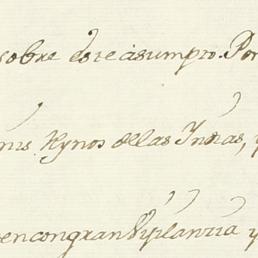 sobre este asumpto. Por
mis Rynos de las Indias, y
en con gran Vigilancia y